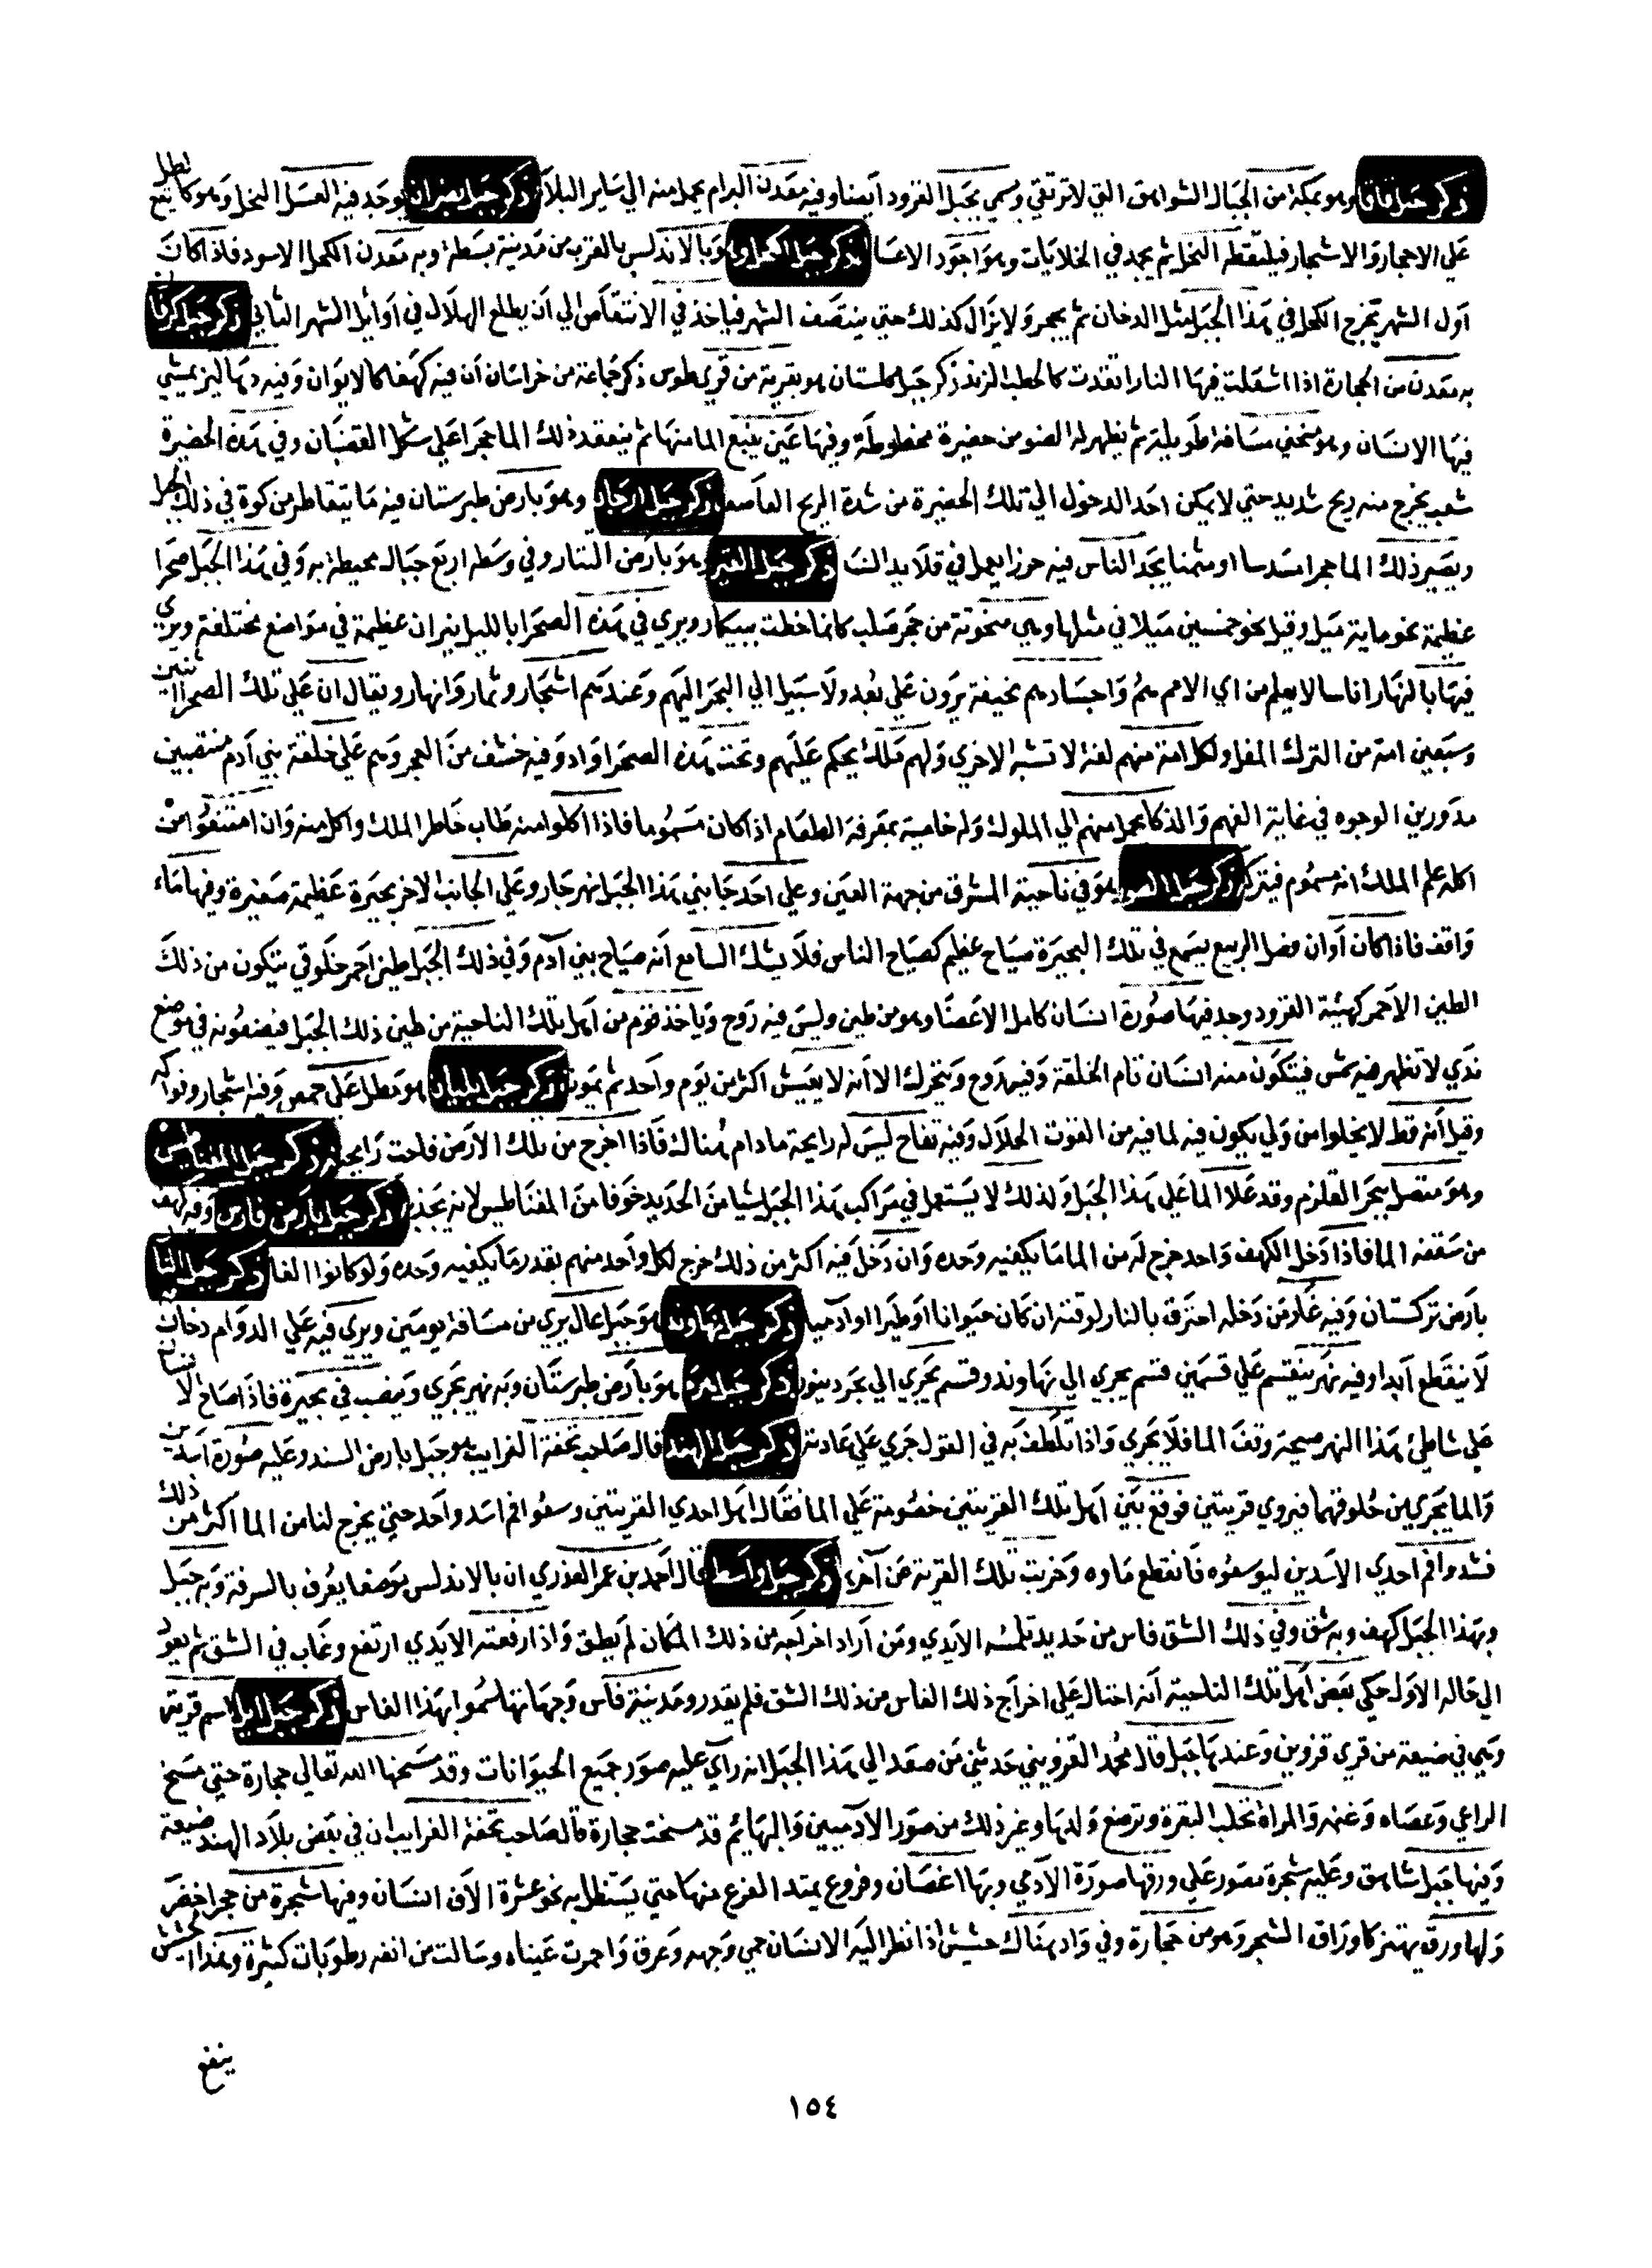 ذكر جبل قاقا وهو بمكة من الجبال الشواهق التي لا ترتقي وسمي بجبل القرود ايضا وفيه معدن البرام يحمل منه الي ساير البلاد ذكر جبل يوجد فيه العسل النحل وهو كالطل يقع
علي الاحجار والاشجار فيلتقطه النحل ثم يمجه في الخلايات وهو اجود الاعسال ذكر جبل الكحل وهو بالاندلس بالقرب من مدينة بسطة وبه معدن الكحل الاسود فاذا كان
اول الشهر يخرج الكحل في هذا الجبل مثل الدخان ثم يحجر ولا يزال كذلك حتي ينتصف الشهر فياخذ في الانتقاص الي ان يطلع الهلال في اوايل الشهر الثاني ذكر جبل
به معدن من الحجارة اذا اشعلت فيها النار اتقدت كالحطب الزند ذكر جبل كلستان هو بقرية من قري طوس ذكر جماعة من خراسان ان فيه كهفا كالايوان وفيه دهاليز يمشي
فيها الانسان وهو منحني مسافة طويلة ثم يظهر له الضو من حضيرة محطوطة وفيها عين ينبع الما منها ثم ينعقد ذلك الما حجرا علي شكل القضبان وفي هذه الحضيرة
شعب يخرج منه ريح شديد حتي لا يمكن احد الدخول الي تلك الحضيرة من شدة الريح العاصف ذكر جبل وهو بارض طبرستان فيه ما يتقاطر من كوة في ذلك الجبل
ويصير ذلك الما حجرا مسدسا او مثمنا يجد الناس فيه حرزا يعمل في قلايد النسا ذكر جبل القبر وهو بارض التتار وفي وسطه اربع جبال محيطة به وفي هذا الجبل صحرا
عظيمة نحو ماية ميل وقيل نحو خمسين ميلا في مثلها وهي منحوتة من حجر صلب كانما خطت ببيكار ويري في هذه الصحرا بالليل نيران عظيمة في مواضع مختلفة ويري
فيها بالنهار اناسا لا يعلم من اي الامم هم واجسادهم نحيفة يرون علي بعد ولا سبيل الي اليهم وعندهم اشجار وثمار وانهار ويقال ان علي تلك الصحرا اثنين
وسبعين امة من الترك المغل ولكل امة منهم لغة لا تشبه الاخري ولهم ملك يحكم عليهم وتحت هذه الصحرا واد وفيه من وهم علي خلقة بني آدم منتصبين
مدورين الوجوه في غاية الفهم والذكا يحمل منهم الي الملوك وله خاصية بمعرفة الطعام اذا كان مسموما فاذا اكلوا منه طاب خاطر الملك واكل منه وان امتنعوا من
اكله علم الملك انه مسموم فيتركه ذكر جبل هو في ناحية المشرق من جهة الصين وعلي احد جانبي هذا الجبل نهر جار وعلي الجانب الاخر بحيرة عظيمة صغيرة وفيها ماء
واقف فاذا كان اوان فصل الربيع يسمع في تلك البحيرة صياح عظيم كصياح الناس فلا يشك السامع انه صياح بني آدم وفي ذلك الجبل طين احمر خلوقي يتكون من ذلك
الطين الاحمر كهيئة القرود وجد فيها صورة انسان كامل الاعضا وهو من طين وليس فيه روح وياخذ قوم من اهل تلك الناحية من طين ذلك الجبل فيضعونه في موضع
ندي لا تظهر فيه شمس فيتكون منه انسان تام الخلقة وفيه روح ويتحرك الا انه لا يعيش اكثر من يوم واحد ثم يموت ذكر جبل لبنان هو مطل علي حمص وفيه اشجار وفواكه
وقيل انه قط لا يخلوا من ولي يكون فيه لما فيه من القوت الحلال وفيه تفاح ليس له رايحة ما دام هناك فاذا اخرج من تلك الارض فاحت رايحته ذكر جبل المغناطيس
وهو متصل ببحر القلزم وقد علا الما علي هذا الجبل ولذلك لا يستعمل في مراكب هذا الجبل شيا من الحديد خوفا من المغناطيس لانه يجذبه ذكر جبل بارض فارس وفيه كهف
من سقفه الما فاذا دخل الكهف واحد خرج له من الما ما يكفيه وحده وان دخل فيه اكثر من ذلك خرج لكل واحد منهم بقدر ما يكفيه وحده ولو كانوا الفا ذكر جبل النار
بارض تركستان وفيه غار من دخله احترق بالنار لوقته ان كان حيوانا او طيرا او آدميا ذكر جبل نهاوند هو جبل عال يري من مسافة يومين ويري فيه علي الدوام دخان
لا ينقطع ابدا وفيه نهر ينقسم علي قسمين قسم يجري الي نهاوند وقسم يجري الي دينور ذكر جبل هو بارض طبرستان وبه نهر يجري ويصب في بحيرة فاذا صاح الانسان
علي شاطئ هذا النهر صيحة وقف الما فلا يجري واذا تلطف به في القول جري علي عادته ذكر جبل الهند قال صاحب تحفة الغرايب هو جبل بارض السند وعليه صورة اسدين
والما يجري من حلوقهما فيروي قريتين فوقع بين اهل تلك القريتين خصومة علي الما فقال اهل احدي القريتين وسعوا فم اسد واحد حتي يخرج لنا من الما اكثر من ذلك
فشدوا فم احدي الاسدين ليوسعوه فانقطع ماوه وخربت تلك القرية عن آخرها ذكر جبل واسط قال احمد بن عمر العذري ان بالاندلس موضعا يعرف بالسرفة وبه جبل
وبهذا الجبل كهف وبه شق وفي ذلك الشق فاس من حديد تلمسه الايدي ومن اراد اخراجه من ذلك المكان لم يطق واذا رفعته الايدي ارتفع وغاب في الشق ثم يعود
الي حاله الاول حكي بعض اهل تلك الناحية انه احتال علي اخراج ذلك الفاس من ذلك الشق فلم يقدر ومدينة فاس وجهاتها سموا بهذا الفاس ذكر جبل اسم قرية
وهي في ضيعة من قري قزوين وعندها جبل قال محمد القزويني حدثني من صعد الي هذا الجبل انه راي عليه صور جميع الحيوانات وقد مسخها الله تعالي حجارة حتي مسخ
الراعي وعصاه وغنمه والمراة تحلب البقرة وترضع ولدها وغير ذلك من صور الآدميين والبهائم قد مسخت حجارة قال صاحب تحفة الغرايب ان في بعض بلاد الهند ضيعة
وفيها جبل شاهق وعليه شجرة مصور علي ورقها صورة الآدمي وبها اغصان وفروع يمتد الفرع منها حتي يستظل به نحو عشرة الاف انسان وفيها شجرة من حجر اخضر
ولها ورق يهتز كاوراق الشجر وهو من حجارة وفي واد هناك حشيش اذا نظر اليه الانسان حمي وجهه وعرق واحمرت عيناه وسالت من انفه رطوبات كثيرة وهذا الحشيش
ينفع
١٥٤